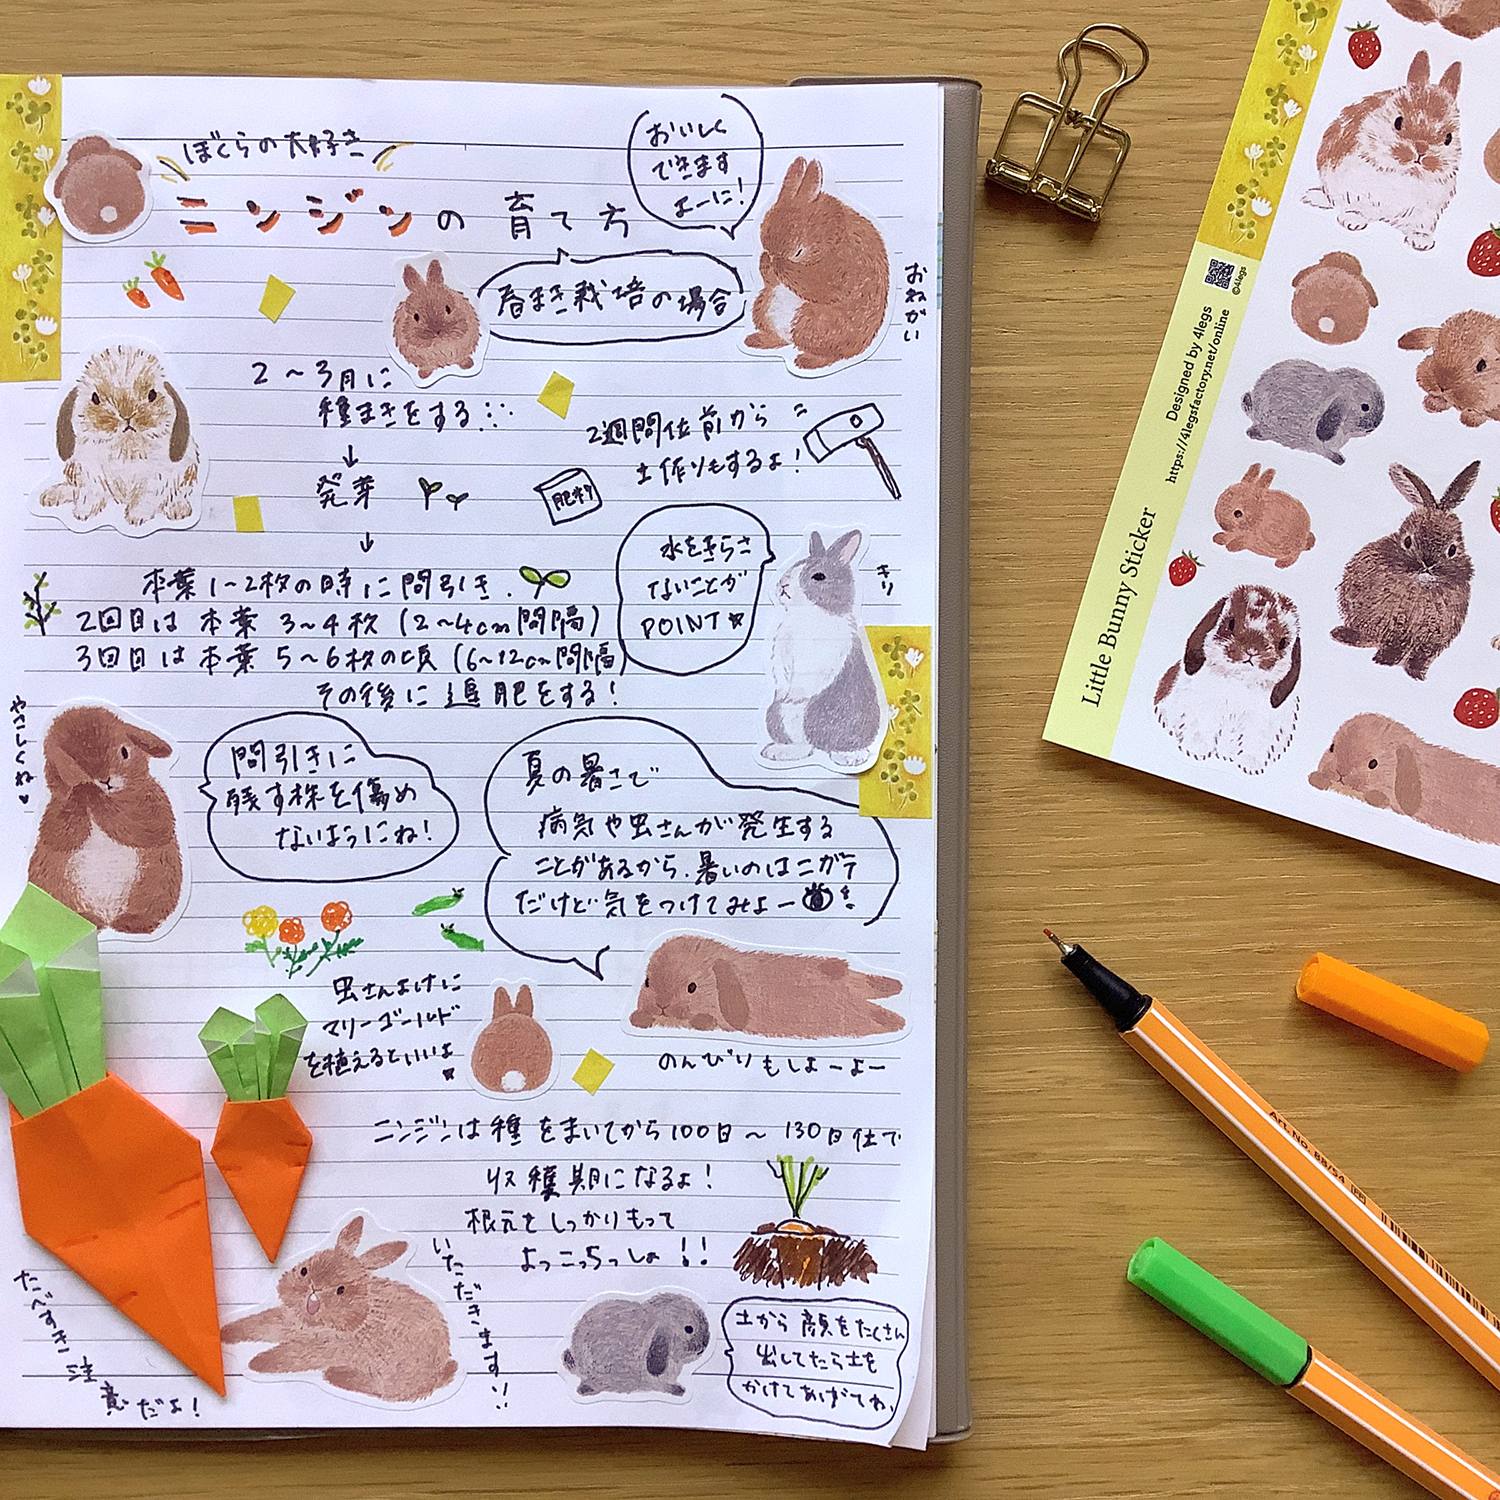 ぼくらの大好き
ニンジンの育て方
おいしく
できます
よーに！
おねがい
春まき栽培の場合
2～3月に
種まきをする
↓
発芽
↓
2週間位前から
土作りもするよ！
肥料
本葉1～2枚の時に間引き.
2回目は本葉3～4枚(2～4cm間隔)
3回目は本葉5～6枚の頃(6～12cm間隔)
その後に追肥をする！
水をきらさ
ないことが
POINT
キリ
やさしくね♥
間引きに
残す株を傷め
ないようにね！
夏の暑さで
病気や虫さんが発生する
ことがあるから、暑いのはニガテ
だけど気をつけてみよー
のんびりもしよーよー
虫さんよけに
マリーゴールド
を植えるといいよ
ニンジンは種をまいてから100日～130日位で
収穫期になるよ！
根元をしっかりもって
よっこらっしょ!!
いただきます
たべすぎ注意だよ！
土から顔をたくさん
出してたら土を
かけてあげてね
Little Bunny Sticker
Designed by 4legs
https://4legsfactory.net/online
©4legs
Art. No. 88/54